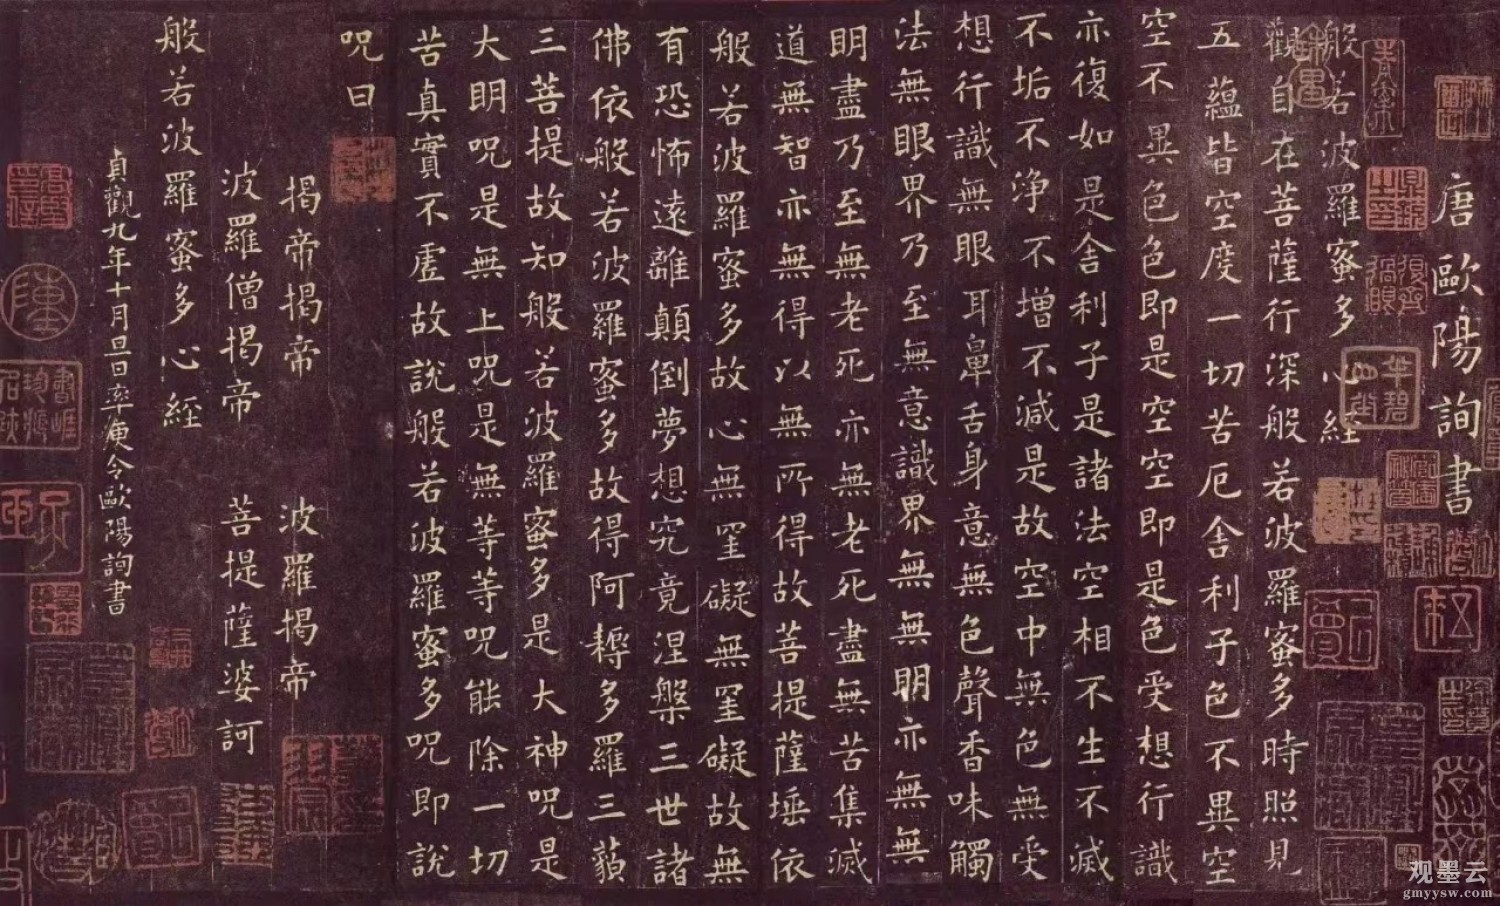 唐歐陽詢書
般若波羅蜜多心経
觀自在菩薩行深般若波羅蜜多時照見
五蘊皆空度一切苦厄舍利子色不異空
空不異色色即是空空即是色受想行識
亦復如是舍利子是諸法空相不生不滅
不垢不净不增不減是故空中無色無受
想行識無眼耳鼻舌身意無色聲香味觸
法無眼界乃至無意識界無無明亦無無
明盡乃至無老死亦無老死盡無苦集滅
道無智亦無得以無所得故菩提薩埵依
般若波羅蜜多故心無罣礙無罣礙故無
有恐怖遠離顛倒夢想究竟涅槃三世諸
佛依般若波羅蜜多故得阿耨多羅三藐
三菩提故知般若波羅蜜多是大神咒是
大明咒是無上咒是無等等咒能除一切
苦真實不虛故說般若波羅蜜多咒即說
咒曰
揭帝揭帝 波羅揭帝
波羅僧揭帝 菩提薩婆訶
般若波羅蜜多心経
貞觀九年十月旦日率更令歐陽詢書
观墨云
gmyysw.com